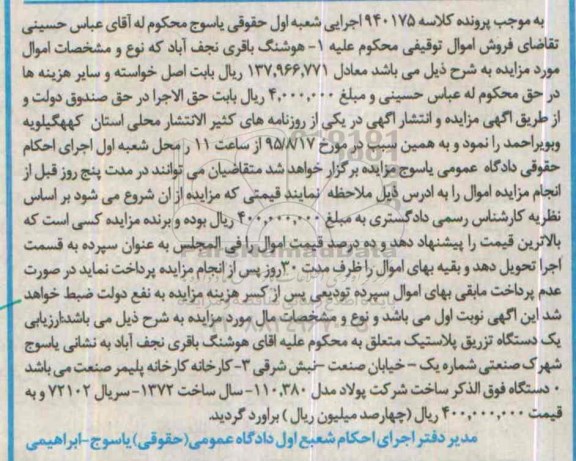 به موجب پرونده کلاسه ۹۴۰۱۷۵ اجرایی شعبه اول حقوقی یاسوج محکوم له آقای عباس حسینی
تقاضای فروش اموال توقیفی محکوم علیه ۱- هوشنگ باقری نجف آباد که نوع و مشخصات اموال
مورد مزایده به شرح ذیل می باشد معادل ۱۳۷,۹۶۶,۷۷۱ ریال بابت اصل خواسته و سایر هزینه ها
در حق محکوم له عباس حسینی و مبلغ ۴,۰۰۰,۰۰۰ ریال بابت حق الاجرا در حق صندوق دولت و
از طریق اگهی مزایده و انتشار اگهی در یکی از روزنامه های کثیر الانتشار محلی استان کهگیلویه
وبویراحمد را نمود و به همین سبب در مورخ ۹۵/۸/۱۷ از ساعت ۱۱ ر محل شعبه اول اجرای احکام
حقوقی دادگاه عمومی یاسوج مزایده برگزار خواهد شد متقاضیان می توانند در مدت پنج روز قبل از
انجام مزایده اموال را به ادرس ذیل ملاحظه نمایند قیمتی که مزایده از ان شروع می شود بر اساس
نظریه کارشناس رسمی دادگستری به مبلغ ۴۰۰,۰۰۰,۰۰۰ ریال بوده و برنده مزایده کسی است که
بالاترین قیمت را پیشنهاد دهد و ده درصد قیمت اموال را فی المجلس به عنوان سپرده به قسمت
اجرا تحویل دهد و بقیه بهای اموال را ظرف مدت ۳۰ روز پس از انجام مزایده پرداخت نماید در صورت
عدم پرداخت مابقی بهای اموال سپرده تودیعی پس از کسر هزینه مزایده به نفع دولت ضبط خواهد
شد این آگهی نوبت اول می باشد و نوع و مشخصات مال مورد مزایده به شرح ذیل می باشد:ارزیابی
یک دستگاه تزریق پلاستیک متعلق به محکوم علیه اقای هوشنگ باقری نجف آباد به نشانی یاسوج
شهرک صنعتی شماره یک – خیابان صنعت – نبش شرقی ۳- کارخانه کارخانه پلیمر صنعت می باشد
۰ دستگاه فوق الذکر ساخت شرکت پولاد مدل ۱۱۰,۳۸۰- سال ساخت ۱۳۷۲- سریال ۷۲۱۰۲ و به
قیمت ۴۰۰,۰۰۰,۰۰۰ ریال (چهارصد میلیون ریال) براورد گردید.
مدیر دفتر اجرای احکام شعبع اول دادگاه عمومی(حقوقی) یاسوج-ابراهیمی